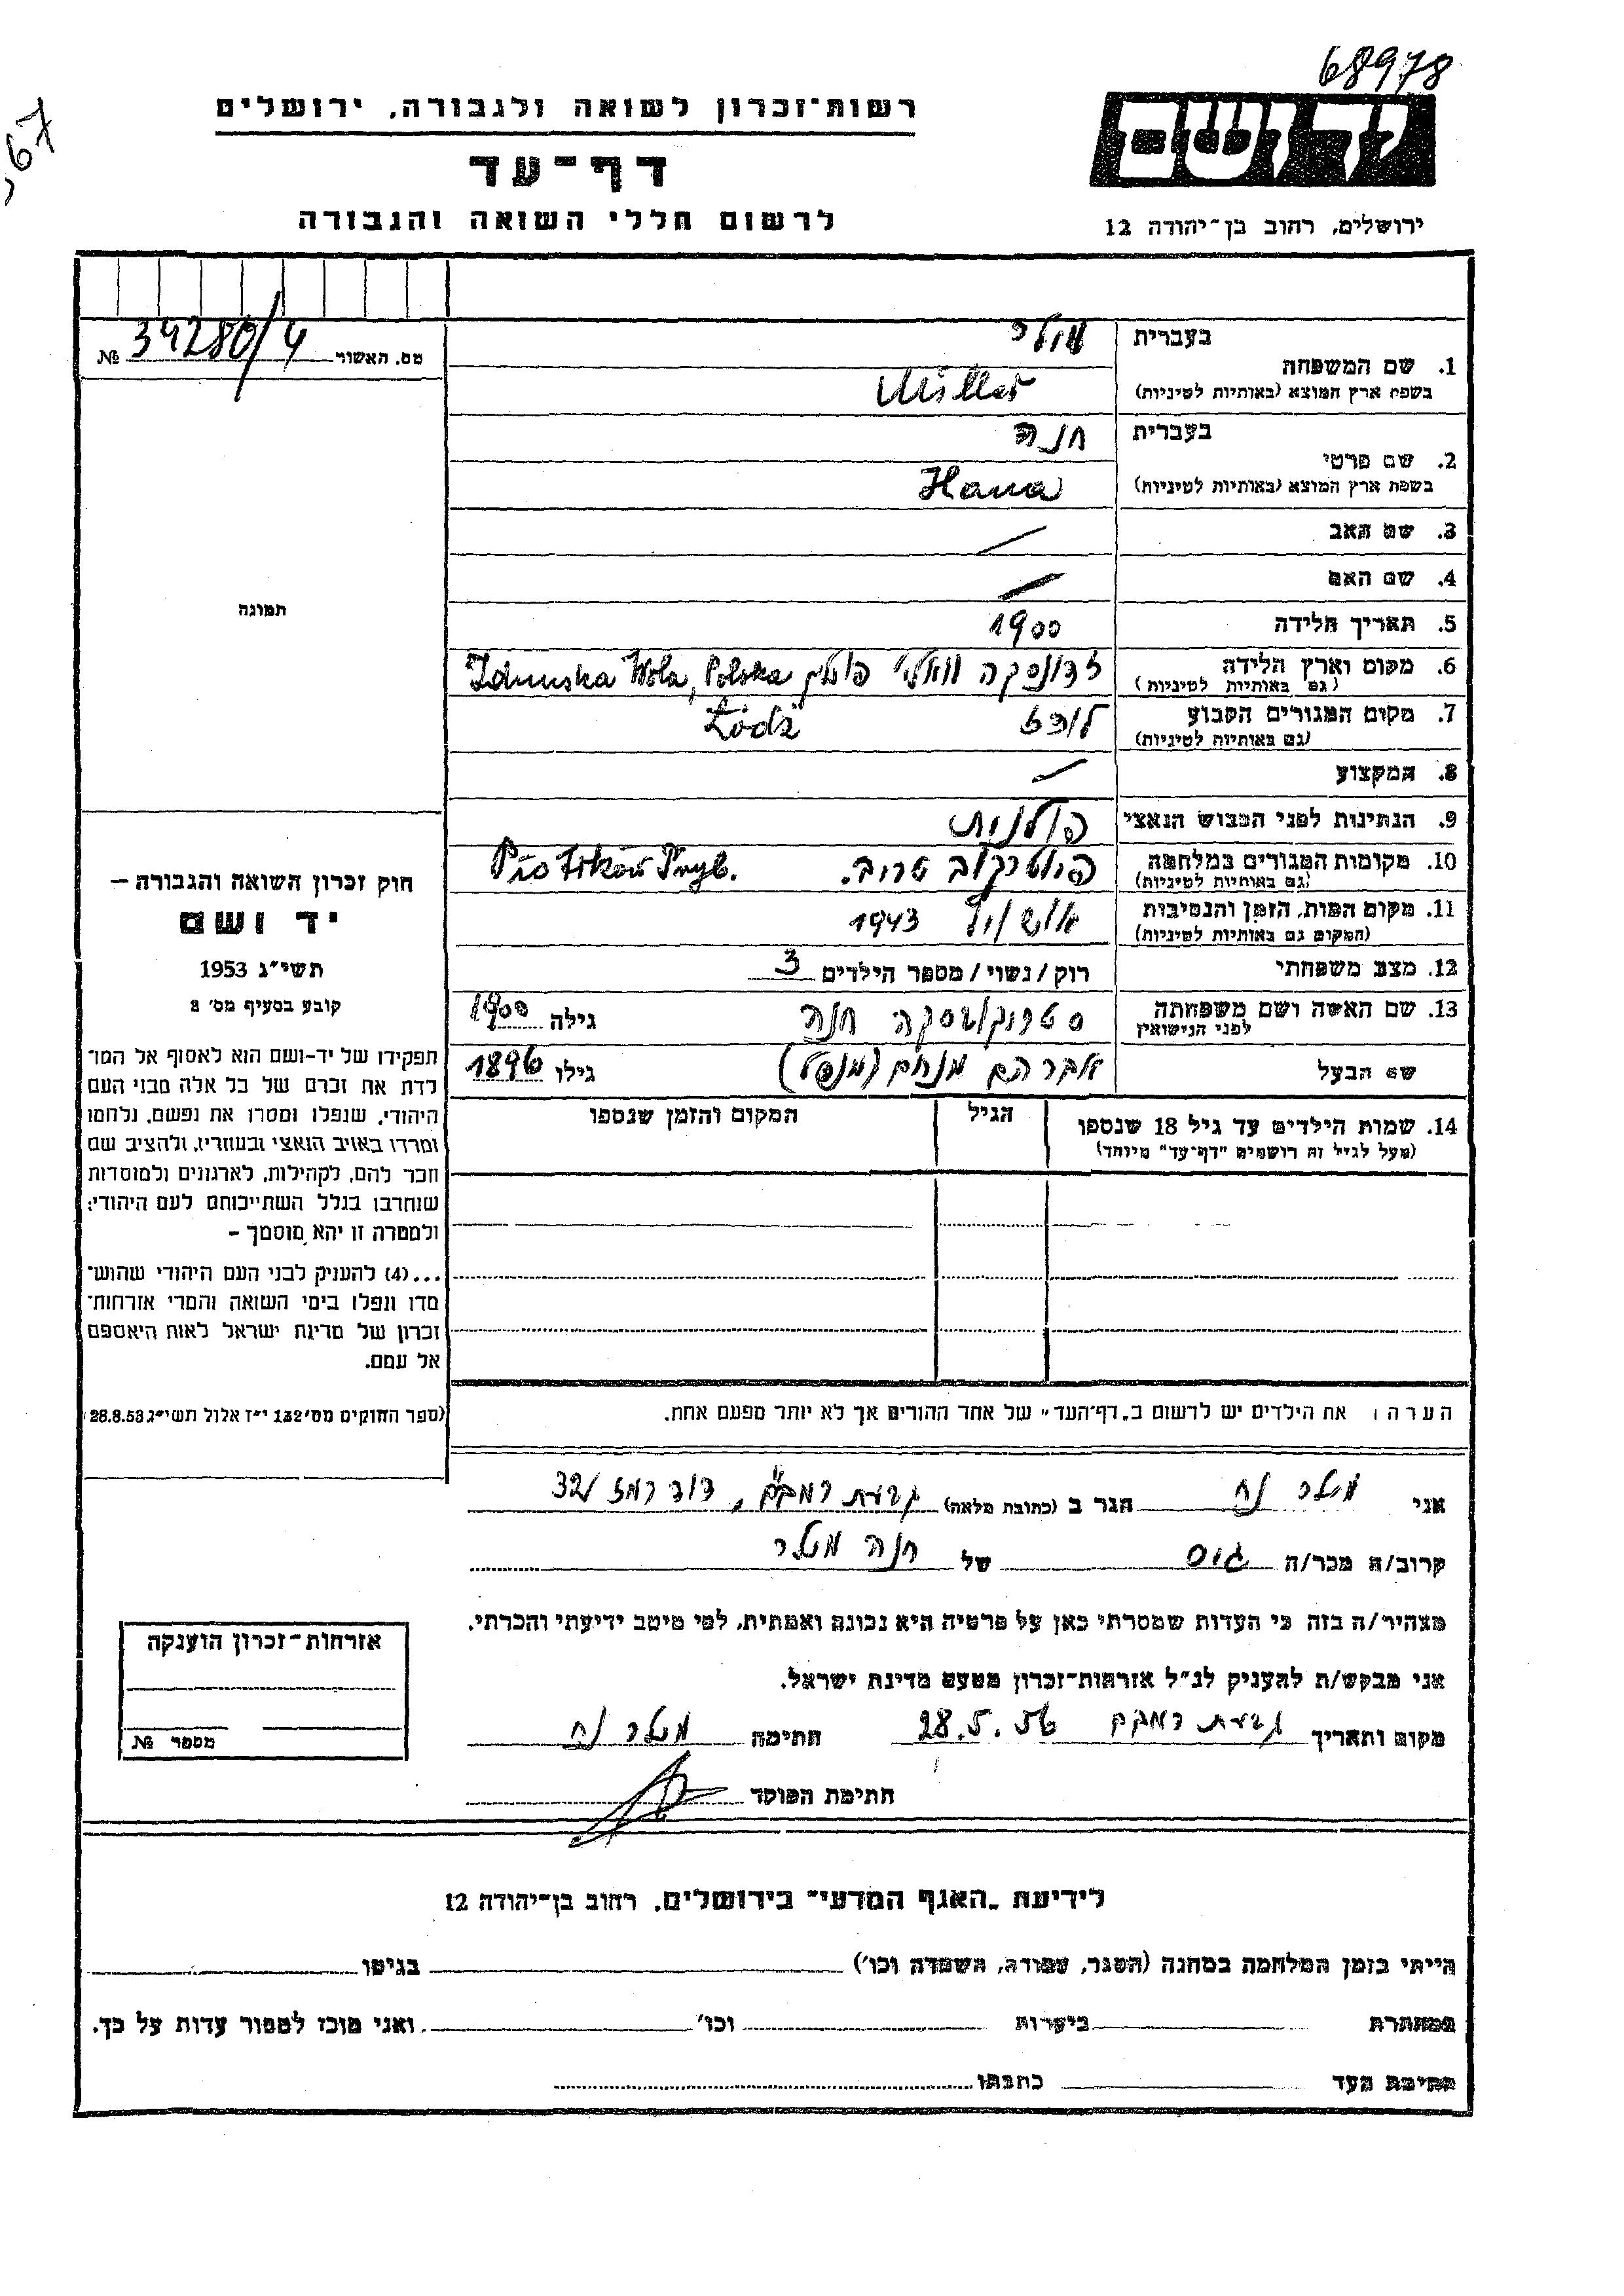 68978
67
יד ושם
רשות־זכרון לשואה ולגבורה, ירושלים
דף־עד
לרשום חללי השואה והגבורה
ירושלים, רחוב בן־יהודה 12
מס. האשור 34280/4 №
תמונה
1. שם המשפחה
בעברית מולר
בשפת ארץ המוצא (באותיות לטיניות) Müller
2. שם פרטי
בעברית חנה
בשפת ארץ המוצא (באותיות לטיניות) Hana
3. שם האב /
4. שם האם /
5. תאריך הלידה 1900
6. מקום וארץ הלידה זדונסקה וואלי פולין Zdunska Wola, Polska
(גם באותיות לטיניות)
7. מקום המגורים הקבוע לודז Łódź
(גם באותיות לטיניות)
8. המקצוע /
9. הנתינות לפני הכבוש הנאצי פולנית
10. מקומות המגורים במלחמה פיוטרקוב טריב. Piotrków Tryb.
(גם באותיות לטיניות)
11. מקום המות, הזמן והנסיבות 1943
(המקום גם באותיות לטיניות)
12. מצב משפחתי רוק/נשוי/מספר הילדים 3
13. שם האשה ושם משפחתה חנה גילה 1900
לפני הנישואין
שם הבעל אברהם מנחם (מנדל) גילו 1896
14. שמות הילדים עד גיל 18 שנספו הגיל המקום והזמן שנספו
(מעל לגיל זה רושמים "דף־עד" מיוחד)
הערה: את הילדים יש לרשום ב„דף־העד" של אחד ההורים אך לא יותר מפעם אחת.
חוק זכרון השואה והגבורה –
יד ושם
תשי"ג 1953
קובע בסעיף מס' 2
תפקידו של יד-ושם הוא לאסוף אל המו־
לדת את זכרם של כל אלה מבני העם
היהודי, שנפלו ומסרו את נפשם, נלחמו
ומרדו באויב הנאצי ובעוזריו, ולהציב שם
וזכר להם, לקהילות, לארגונים ולמוסדות
שנחרבו בגלל השתייכותם לעם היהודי;
ולמטרה זו יהא מוסמך –
...(4) להעניק לבני העם היהודי שהוש־
מדו ונפלו בימי השואה והמרי אזרחות־
זכרון של מדינת ישראל לאות היאספם
אל עמם.
(ספר החוקים מס' 132 י"ז אלול תשי"ג 28.8.53)
אני מולר נח הגר ב (כתובת מלאה) גבעת רמב"ם, דוד רמז 32
קרוב/ה מכר/ה גיס של חנה מולר
מצהיר/ה בזה כי העדות שמסרתי כאן על פרטיה היא נכונה ואמתית, לפי מיטב ידיעתי והכרתי.
אני מבקש/ת להעניק לנ"ל אזרחות־זכרון מטעם מדינת ישראל.
מקום ותאריך גבעת רמבם 28.5.56 חתימה מולר נח
חתימת המוסד
אזרחות־זכרון הוענקה
מספר №
לידיעת „האגף המדעי" בירושלים, רחוב בן־יהודה 12
הייתי בזמן המלחמה במחנה (הסגר, עבודה, השמדה וכו') בגיטו
במחתרת ביערות וכו' ואני מוכן למסור עדות על כך.
חתימת העד כתבתו